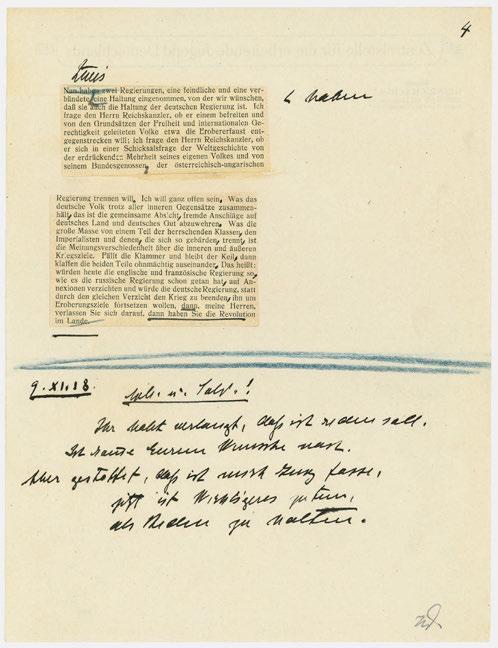 4
Nun haben zwei Regierungen, eine feindliche und eine ver-
bündete eine Haltung eingenommen, von der wir wünschen,
haben
daß sie auch die Haltung der deutschen Regierung ist. Ich
frage den Herrn Reichskanzler, ob er einem befreiten und
von den Grundsätzen der Freiheit und internationalen Ge-
rechtigkeit geleiteten Volke etwa die Erobererfaust ent-
gegenstrecken will; ich frage den Herrn Reichskanzler, ob
er sich in einer Schicksalsfrage der Weltgeschichte von
der erdrückenden Mehrheit seines eigenen Volkes und von
seinem Bundesgenossen, der österreichisch-ungarischen
Regierung trennen will. Ich will ganz offen sein. Was das
deutsche Volk trotz aller inneren Gegensätze zusammen-
hält, das ist die gemeinsame Absicht, fremde Anschläge auf
deutsches Land und deutsches Gut abzuwehren. Was die
große Masse von einem Teil der herrschenden Klassen, den
Imperialisten und denen, die sich so gebärden, trennt, ist
die Meinungsverschiedenheit über die inneren und äußeren
Kriegsziele. Fällt die Klammer und bleibt der Keil, dann
klaffen die beiden Teile ohnmächtig auseinander. Das heißt:
würden heute die englische und französische Regierung so,
wie es die russische Regierung schon getan hat, auf An-
nexionen verzichten und würde die deutsche Regierung, statt
durch den gleichen Verzicht den Krieg zu beenden, ihn um
Eroberungsziele fortsetzen wollen, dann, meine Herren,
verlassen Sie sich darauf, dann haben Sie die Revolution
im Lande.
9.XI.18.
Arb. u. Sold.!
Ihr habt verlangt, daß ich reden soll.
Ich Eurem Wunsche nach.
Aber gestattet, daß ich mich kurz fasse,
jetzt ist Wichtigeres zu tun,
als Reden zu halten.